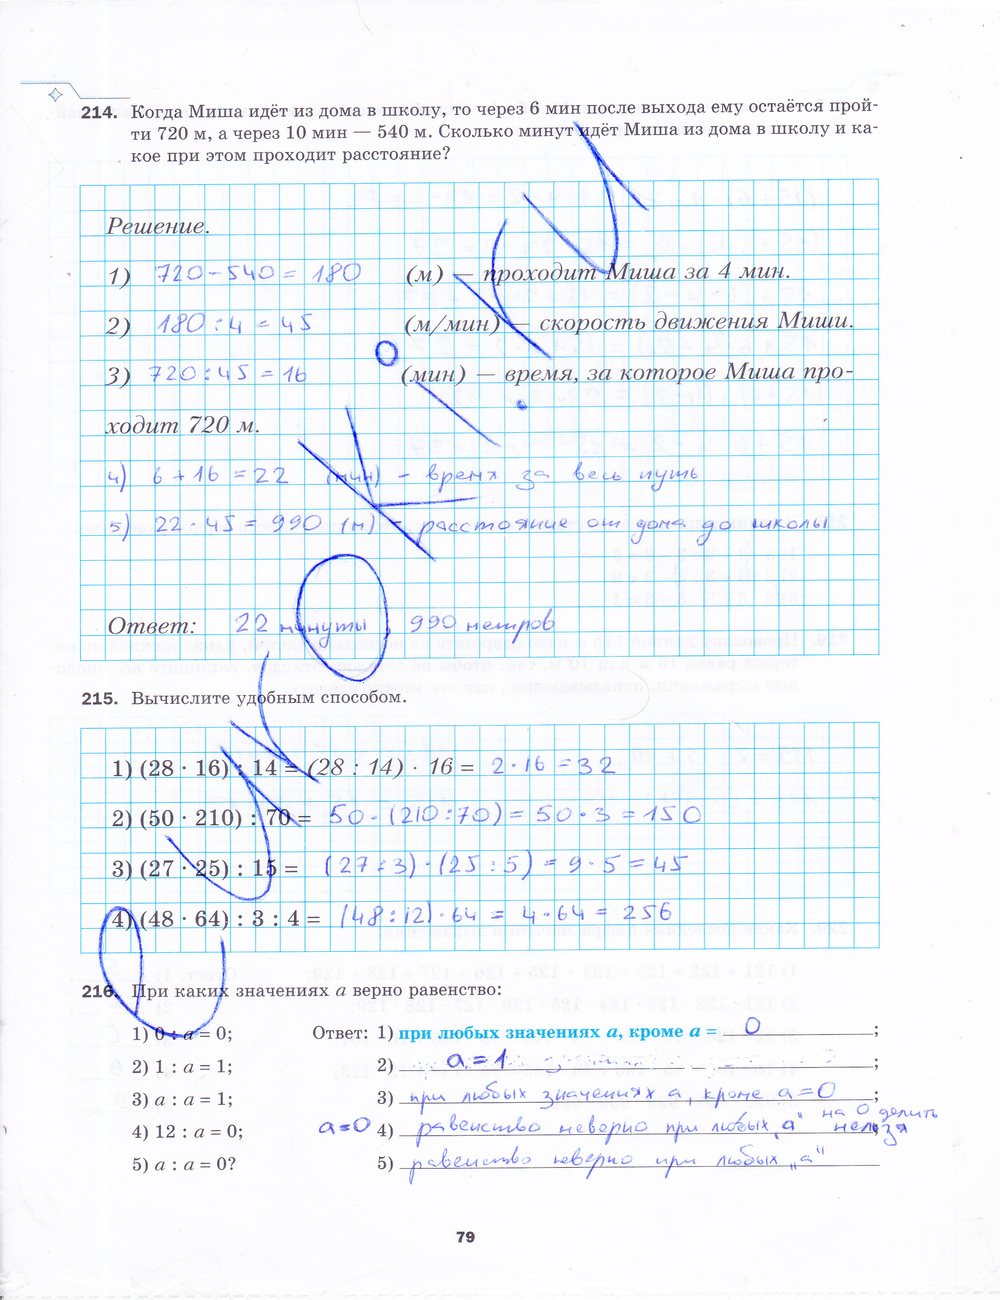 214. Когда Миша идёт из дома в школу, то через 6 мин после выхода ему остаётся прой-
ти 720 м, а через 10 мин — 540 м. Сколько минут идёт Миша из дома в школу и ка-
кое при этом проходит расстояние?
Решение.
1) 720 - 540 = 180 (м) — проходит Миша за 4 мин.
2) 180 : 4 = 45 (м/мин) — скорость движения Миши.
3) 720 : 45 = 16 (мин) — время, за которое Миша про-
ходит 720 м.
4) 6 + 16 = 22 (мин) - время за весь путь
5) 22 · 45 = 990 (м) - расстояние от дома до школы
Ответ: 22 минуты, 990 метров
215. Вычислите удобным способом.
1) (28 · 16) : 14 = (28 : 14) · 16 = 2 · 16 = 32
2) (50 · 210) : 70 = 50 · (210 : 70) = 50 · 3 = 150
3) (27 · 25) : 15 = (27 : 3) · (25 : 5) = 9 · 5 = 45
4) (48 · 64) : 3 : 4 = (48 : 12) · 64 = 4 · 64 = 256
216. При каких значениях a верно равенство:
1) 0 : a = 0; Ответ: 1) при любых значениях a, кроме a = 0;
2) 1 : a = 1; 2) a = 1;
3) a : a = 1; 3) при любых значениях a, кроме a = 0;
4) 12 : a = 0; a=0 4) равенство неверно при любых „a“ на 0 делить нельзя;
5) a : a = 0? 5) равенство неверно при любых „a“
79